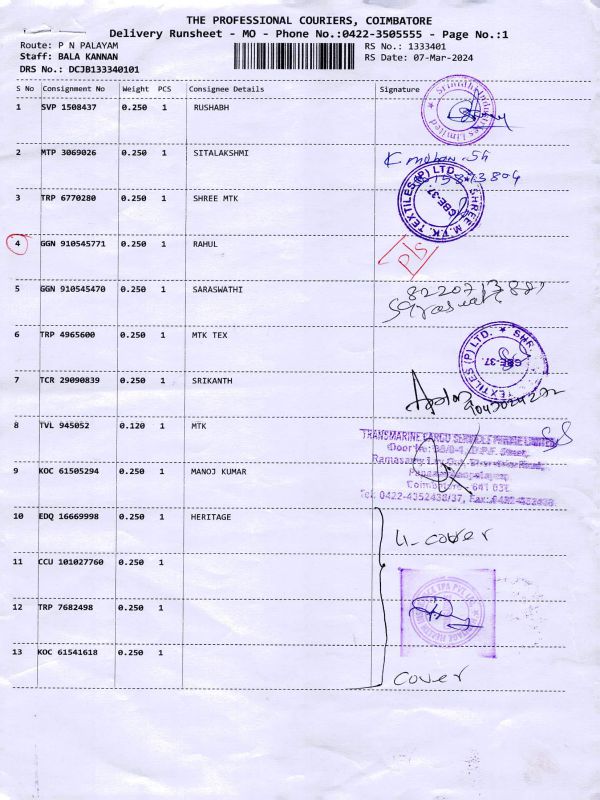 THE PROFESSIONAL COURIERS, COIMBATORE
Delivery Runsheet - MO - Phone No.:0422-3505555 - Page No.:1
Route: P N PALAYAM RS No.: 1333401
Staff: BALA KANNAN RS Date: 07-Mar-2024
DRS No.: DCJB133340101
S No Consignment No Weight PCS Consignee Details Signature
1 SVP 1508437 0.250 1 RUSHABH
2 MTP 3069026 0.250 1 SITALAKSHMI
3 TRP 6770280 0.250 1 SHREE MTK
SHREE M.T.K. TEXTILES (P) LTD. CBE-37.
4 GGN 910545771 0.250 1 RAHUL P/S
5 GGN 910545470 0.250 1 SARASWATHI
6 TRP 4965600 0.250 1 MTK TEX
SHR TEXTILES (P) LTD. CBE-37
7 TCR 29090839 0.250 1 SRIKANTH
8 TVL 945052 0.120 1 MTK
TRANSMARINE CARGO SERVICES PRIVATE LIMITED
Street,
9 KOC 61505294 0.250 1 MANOJ KUMAR
Coimbatore - 641 037.
Tel: 0422-4352438/37, Fax: 0422-
10 EDQ 16669998 0.250 1 HERITAGE 4-cover
11 CCU 101027760 0.250 1
12 TRP 7682498 0.250 1
13 KOC 61541618 0.250 1 cover